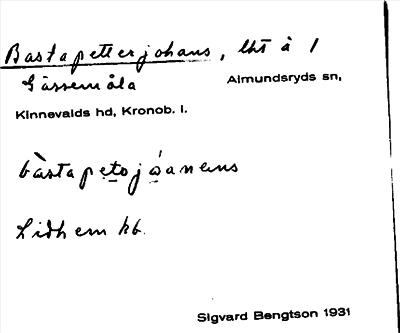 Bastapetterjohans, lht å 1
Gässemåla Almundsryds sn,
Kinnevalds hd, Kronob. l.
bàstapetojåanens
Lidhem kb.
Sigvard Bengtson 1931